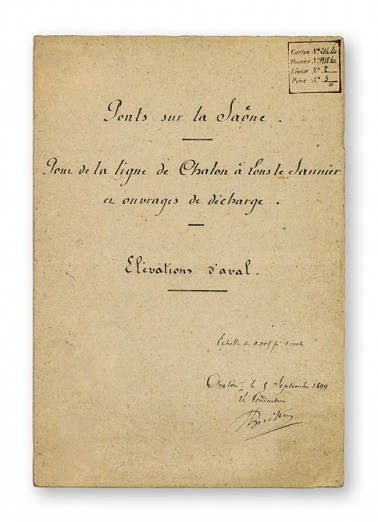 Carton N°
Dossier N°
Liasse N° 2
Pièce N° 3
Ponts sur la Saône.
Pont de la ligne de Chalon à Lons le Saunier
et ouvrages de décharge.
Elévations d'aval.
Echelle de 0.005 pr 1 mètre
Chalon le 5 Septembre 1899
Le Conducteur